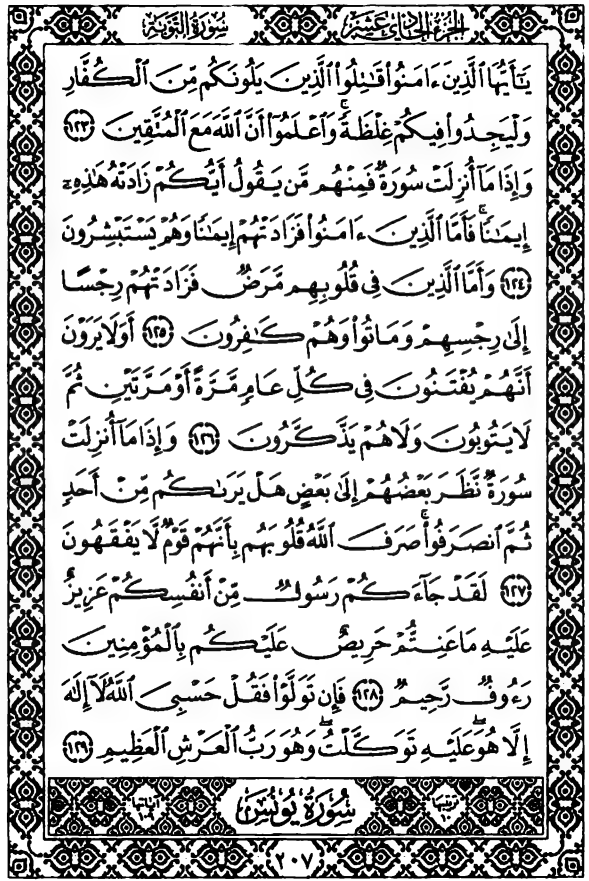 سُورَةُ التَّوْبَةِ
الجُزءُ الحَادِي عَشَرَ
يَٰٓأَيُّهَا ٱلَّذِينَ ءَامَنُوا۟ قَٰتِلُوا۟ ٱلَّذِينَ يَلُونَكُم مِّنَ ٱلْكُفَّارِ
وَلْيَجِدُوا۟ فِيكُمْ غِلْظَةً ۚ وَٱعْلَمُوٓا۟ أَنَّ ٱللَّهَ مَعَ ٱلْمُتَّقِينَ ١٢٣
وَإِذَا مَآ أُنزِلَتْ سُورَةٌ فَمِنْهُم مَّن يَقُولُ أَيُّكُمْ زَادَتْهُ هَٰذِهِۦٓ
إِيمَٰنًا ۚ فَأَمَّا ٱلَّذِينَ ءَامَنُوا۟ فَزَادَتْهُمْ إِيمَٰنًا وَهُمْ يَسْتَبْشِرُونَ
١٢٤ وَأَمَّا ٱلَّذِينَ فِى قُلُوبِهِم مَّرَضٌ فَزَادَتْهُمْ رِجْسًا
إِلَىٰ رِجْسِهِمْ وَمَاتُوا۟ وَهُمْ كَٰفِرُونَ ١٢٥ أَوَلَا يَرَوْنَ
أَنَّهُمْ يُفْتَنُونَ فِى كُلِّ عَامٍ مَّرَّةً أَوْ مَرَّتَيْنِ ثُمَّ
لَا يَتُوبُونَ وَلَا هُمْ يَذَّكَّرُونَ ١٢٦ وَإِذَا مَآ أُنزِلَتْ
سُورَةٌ نَّظَرَ بَعْضُهُمْ إِلَىٰ بَعْضٍ هَلْ يَرَىٰكُم مِّنْ أَحَدٍ
ثُمَّ ٱنصَرَفُوا۟ ۚ صَرَفَ ٱللَّهُ قُلُوبَهُم بِأَنَّهُمْ قَوْمٌ لَّا يَفْقَهُونَ
١٢٧ لَقَدْ جَآءَكُمْ رَسُولٌ مِّنْ أَنفُسِكُمْ عَزِيزٌ
عَلَيْهِ مَا عَنِتُّمْ حَرِيصٌ عَلَيْكُم بِٱلْمُؤْمِنِينَ
رَءُوفٌ رَّحِيمٌ ١٢٨ فَإِن تَوَلَّوْا۟ فَقُلْ حَسْبِىَ ٱللَّهُ لَآ إِلَٰهَ
إِلَّا هُوَ ۖ عَلَيْهِ تَوَكَّلْتُ ۖ وَهُوَ رَبُّ ٱلْعَرْشِ ٱلْعَظِيمِ ١٢٩
ترتيبها ١٠
سُورَةُ يُونُسَ
آياتها ١٠٩
٢٠٧